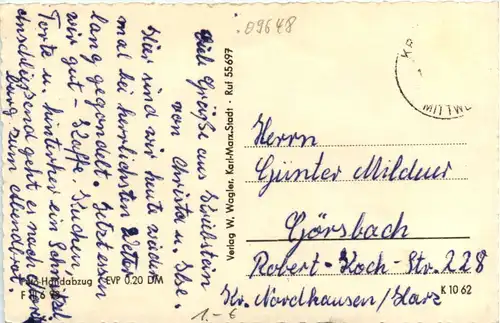 09648
Viele Grüße aus
von Christa u. Ilse.
Hier sind wir heute wieder
mal bei herrlichstem Wetter
lang gegondelt. Jetzt essen
wir gut - Kaffe, Kuchen,
Torte u. hinterher ein
anschliessend geht es nach
burg zum Abendbrot.
Foto-Handabzug EVP 0.20 DM
1.-6
Verlag W. Wagler, Karl-Marx-Stadt · Ruf 55697
Herrn
Günter Mildner
Görsbach
Robert-Koch-Str. 228
Kr. Nordhausen/Harz
K 10 62